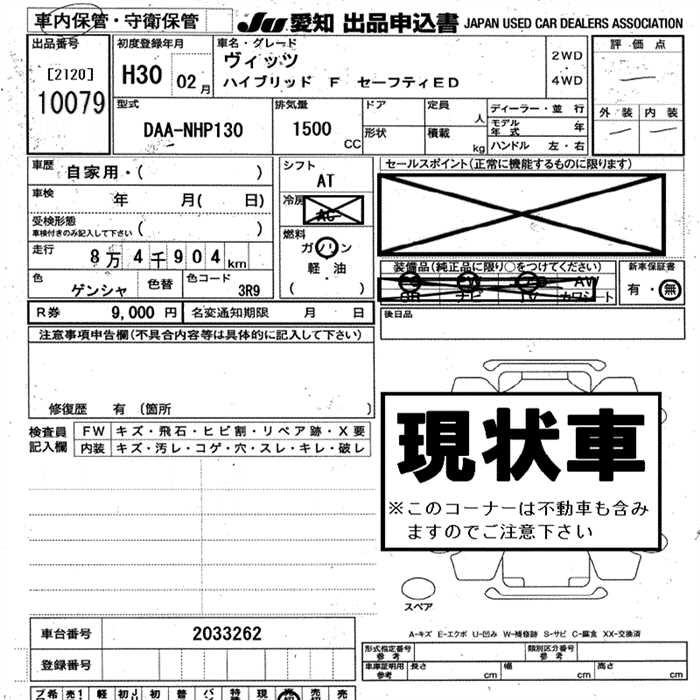 車内保管・守衛保管
JU 愛知 出品申込書 JAPAN USED CAR DEALERS ASSOCIATION
出品番号
[2120]
10079
初度登録年月
H30 02月
車名・グレード
ヴィッツ
ハイブリッド F セーフティED
2WD
・
4WD
評価点
外装 内装
型式
DAA-NHP130
排気量
1500
CC
ドア
形状
定員
人
積載
kg
ディーラー・並行
モデル年式 年
ハンドル 左・右
車歴
自家用・( )
車検 年 月( 日)
受検形態
車検付きのみ記入して下さい ( )
走行
8万4千904km
色
ゲンシャ
色替
色コード
3R9
シフト
AT
冷房
AC
燃料
ガソリン
軽・油
( )
セールスポイント(正常に機能するものに限ります)
装備品(純正品に限り○をつけてください)
ナビ TV カワシート
新車保証書
有・無
後日品
R券 9,000円 名変通知期限 月 日
注意事項申告欄(不具合内容等は具体的に記入して下さい)
修復歴 有 〔箇所 〕
検査員
記入欄
FW キズ・飛石・ヒビ割・リペア跡・X要
内装 キズ・汚レ・コゲ・穴・スレ・キレ・破レ
現状車
※このコーナーは不動車も含み
ますのでご注意下さい
スペア
A-キズ E-エクボ U-凹み W-補修跡 S-サビ C-腐食 XX-交換済
車台番号 2033262
登録番号
形式指定番号
参考
類別区分番号
参考
車庫証明用
参考
長さ cm 幅 cm 高さ cm